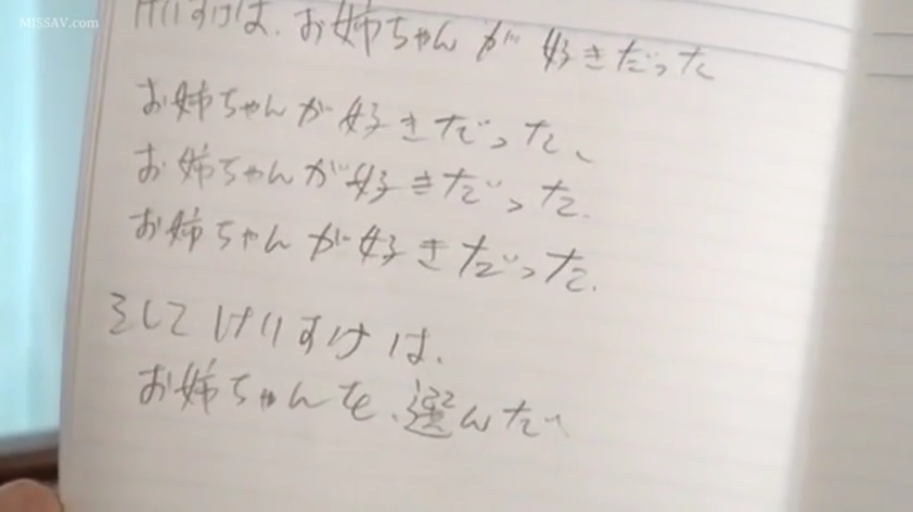 MISSAV.com
けいすけは、お姉ちゃんが好きだった
お姉ちゃんが好きだった、
お姉ちゃんが好きだった。
お姉ちゃんが好きだった。
そしてけいすけは、
お姉ちゃんを、選んだ